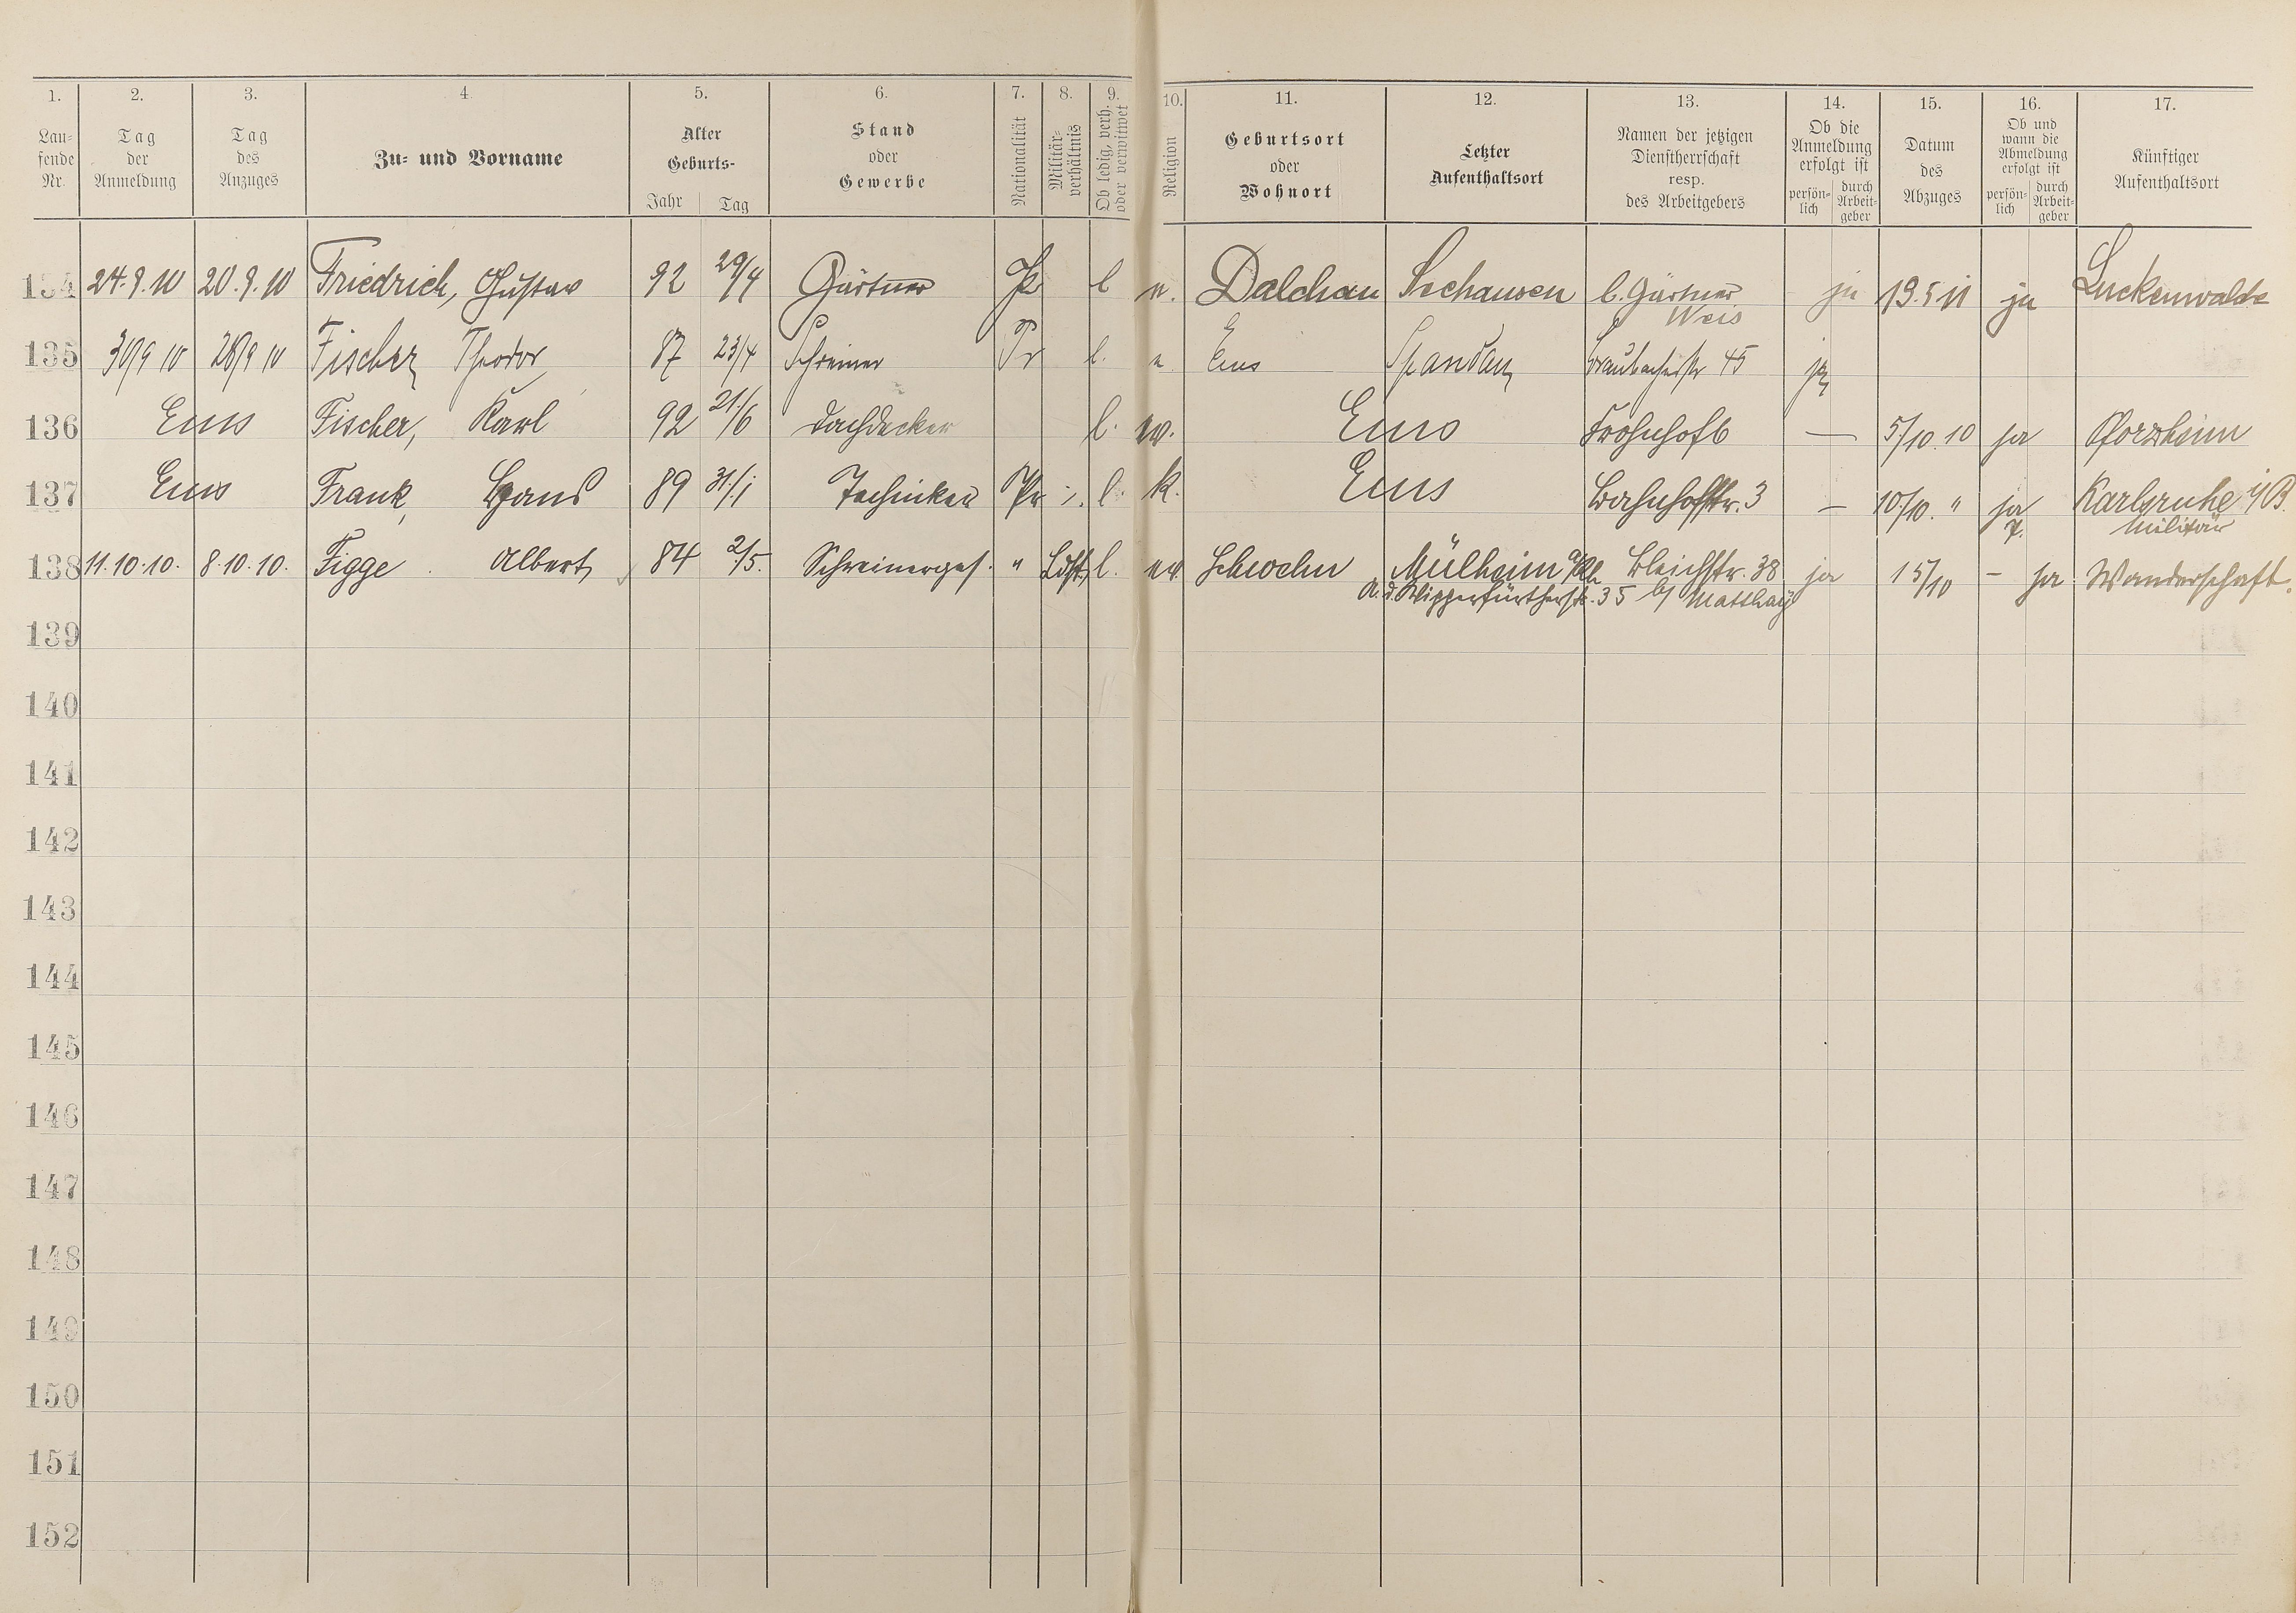 1. 2. 3. 4. 5. 6. 7. 8. 9. 10. 11. 12. 13. 14. 15. 16. 17.
Lau-
fende
Nr.
Tag
der
Anmeldung
Tag
des
Anzuges
Zu- und Vorname
Alter
Geburts-
Jahr Tag
Stand
oder
Gewerbe
Nationalität
Militär-
verhältnis
Ob ledig, verh.
oder verwitwet
Religion
Geburtsort
oder
Wohnort
Letzter
Aufenthaltsort
Namen der jetzigen
Dienstherrschaft
resp.
des Arbeitgebers
Ob die
Anmeldung
erfolgt ist
persön-
lich
durch
Arbeit-
geber
Datum
des
Abzuges
Ob und
wann die
Abmeldung
erfolgt ist
persön-
lich
durch
Arbeit-
geber
Künftiger
Aufenthaltsort
134 24.9.10 20.9.10 Friedrich, Gustav 92 29/4 Gärtner Pr l e. Dalchau Seehausen b. Gärtner ja 19.5 11 ja Luckenwalde
Weis
135 30/9 10 28/9 10 Fischer Theodor 87 23/4 Schreiner Pr l. e Ems Spandau 45 ja
136 Ems Fischer, Karl 92 21./6 Dachdecker l. ev. Ems Frohnhof 6 — 5/10.10 ja Pforzheim
137 Ems Frank, Hans 89 31./1 Techniker Pr l. k. Ems Bahnhofstr. 3 — 10/10. " ja Karlsruhe i/B.
Militär
138 11.10.10. 8.10.10. Figge Albert 84 2/5. Schreinerges. " l. ev. Mülheim a/Rh Bleichstr. 38 ja 15/10 – ja Wanderschaft.
a. d. Wipperfürtherstr. 35 b/ Matthay
139
140
141
142
143
144
145
146
147
148
149
150
151
152